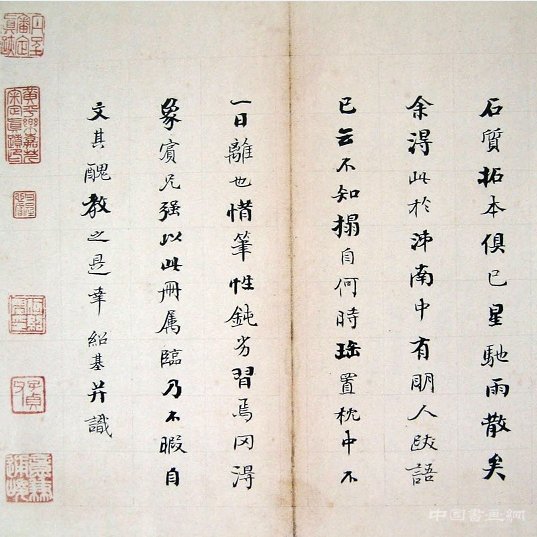 石質拓本俱已星馳雨散矣
余得此於泲南中有明人跋語
已云不知搨自何時珤置枕中不
一日離也惜筆性鈍劣習焉罔得
象賓兄强以此冊属臨乃不暇自
文其醜教之是幸紹基并識
子貞
中国書画網